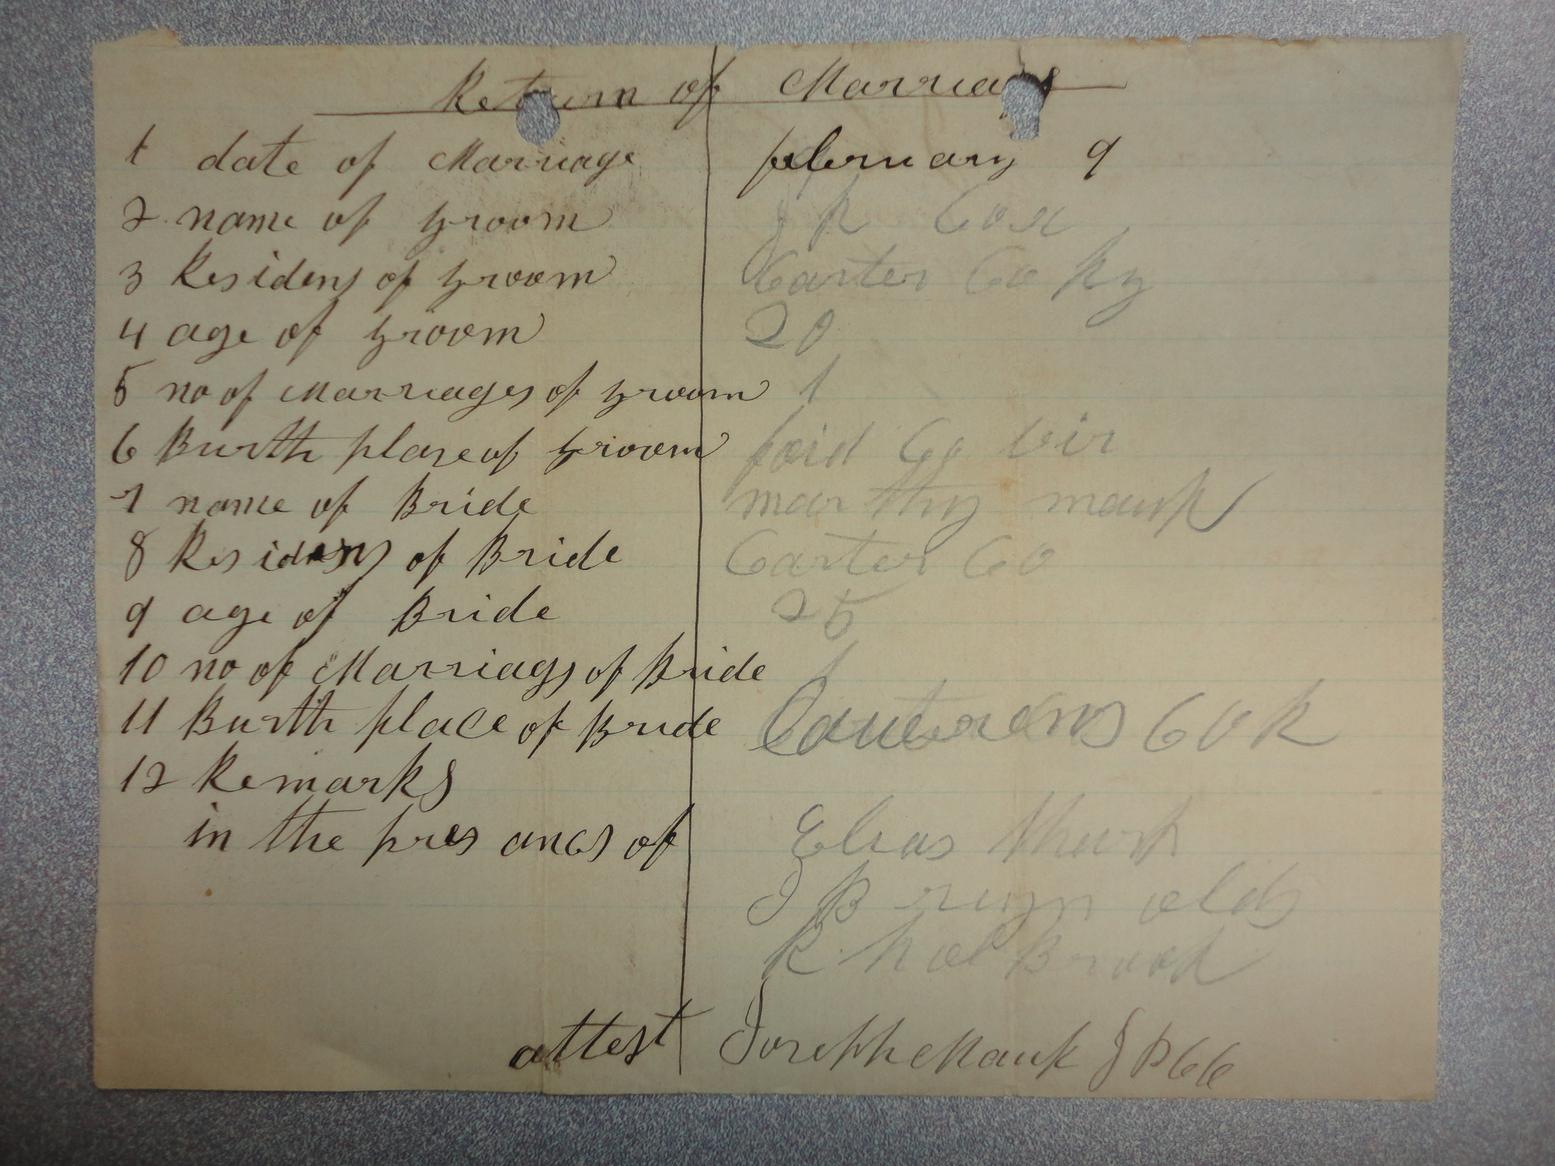 Return of Marriag
1 date of Marriage february 9
2 name of groom J R Cox
3 Residens of groom Carter Co Ky
4 age of groom 20
5 no of Marriages of groom 1
6 Burth plase of groom foid Co Vir
7 name of Bride marthy mauk
8 Residens of Bride Carter Co
9 age of Bride 25
10 no of Marriags of Bride 1
11 Burth place of Bride Co K
12 Remarks
in the pres ancs of Elias
J B reyn olds
R hol Brook
attest Joseph Mauk J P C C